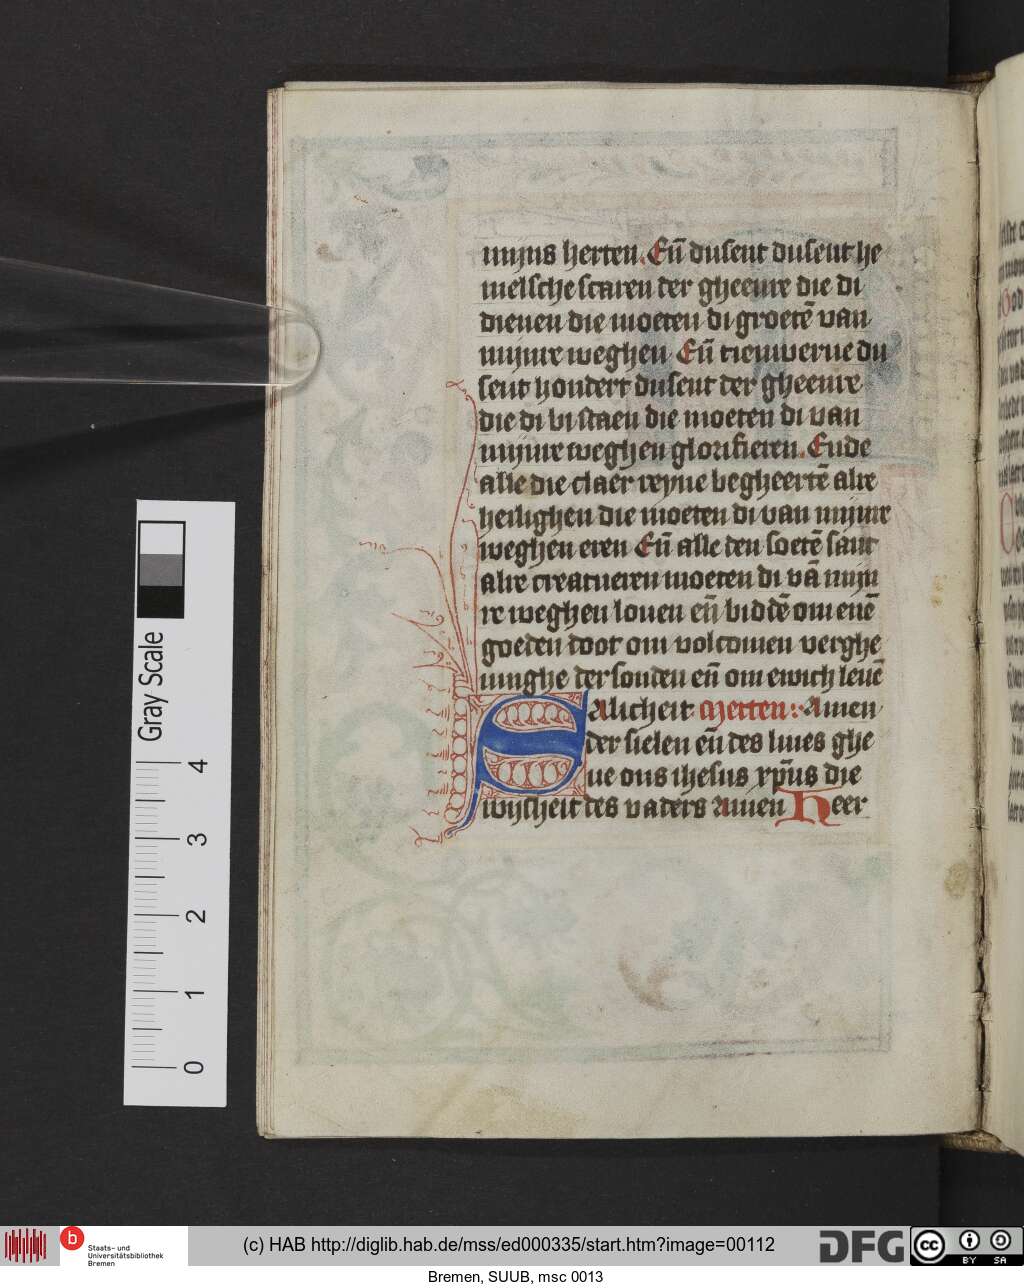 mijns herten. Eñ dusent dusent he
melsche scaren der gheenre die di
dienen die moeten di groetē van
mijnre weghen Eñ tienwerue du
sent hondert dusent der gheenre
die di bi staen die moeten di van
mijnre weghen glorifieren. Ende
alle die claer reyne begheertē alre
heilighen die moeten di van mijnre
weghen eren Eñ alle den soetē sanc
alre creatueren moeten di vā mijn
re weghen louen eñ biddē om enē
goeden doot om volcomen verghe
uinghe der sonden eñ om ewich leuē
Salicheit Metten: Amen
der sielen eñ des liues ghe
ue ons ihesus xp̄us die
wijsheit des vaders Amen Heer
Gray Scale
4
3
2
1
0
b Staats- und
Universitätsbibliothek
Bremen
(c) HAB http://diglib.hab.de/mss/ed000335/start.htm?image=00112
DFG
cc BY SA
Bremen, SUUB, msc 0013